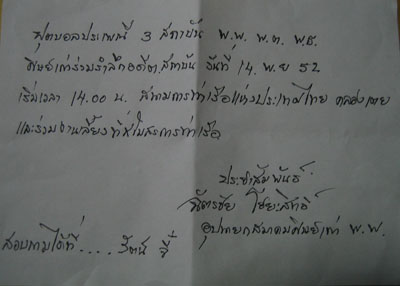 ฟุตบอลประเพณี 3 สถาบัน พ.พ. พ.ต. พ.ช.
ศิษย์เก่าร่วมรำลึกอดีต สถาบัน วันที่ 14 พ.ย 52
เริ่มเวลา 14.00 น. สนามการท่าเรือแห่งประเทศไทย คลองเตย
และร่วมงานเลี้ยงที่สโมสรการท่าเรือ
ประชาสัมพันธ์
ฉัตรชัย โชยะสิทธิ์
อุปนายกสมาคมศิษย์เก่า พ.พ.
สอบถามได้ที่.... รัตน์ จี้